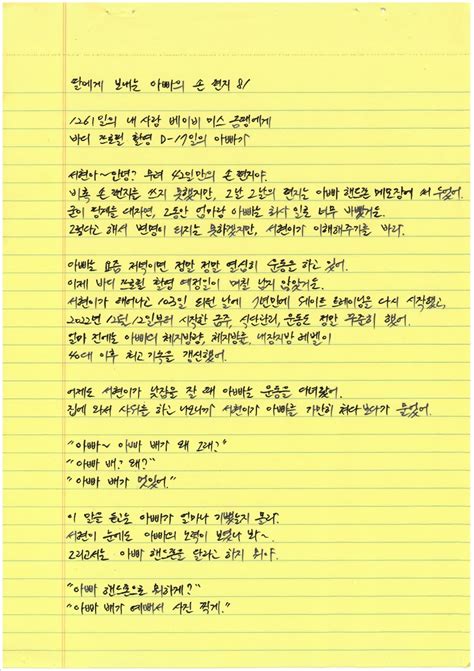 딸에게 보내는 아빠의 손 편지 81
1261일의 내 사랑 베이비 미스 곰팽에게
바디 프로필 촬영 D-17일의 아빠가
서현아~ 안녕? 무려 42일만의 손 편지야.
비록 손 편지를 쓰지 못했지만, 그날 그날의 편지는 아빠 핸드폰 메모장에 써 두었어.
굳이 핑계를 대자면, 그동안 엄마랑 아빠는 회사 일로 너무 바빴거든.
그렇다고 해서 변명이 되지는 못하겠지만, 서현이가 이해해주기를 바라.
아빠는 요즘 저녁이면 정말 정말 열심히 운동을 하고 있어.
이제 바디 프로필 촬영 예정일이 며칠 남지 않았거든.
서현이가 태어나고 103일 되던 날에 7년만에 웨이트 트레이닝을 다시 시작했고,
2022년 12월 12일부터 시작한 금주, 식단관리, 운동도 정말 꾸준히 했어.
얼마 전에는 아빠의 체지방량, 체지방률, 내장지방 레벨이
40대 이후 최고 기록을 갱신했어.
어제도 서현이가 낮잠을 잘 때 아빠는 운동을 다녀왔어.
집에 와서 샤워를 하고 나오니까 서현이가 아빠를 가만히 쳐다보다가 물었어.
"아빠~ 아빠 배가 왜 그래?"
"아빠 배? 왜?"
"아빠 배가 멋있어."
이 말을 듣고는 아빠가 얼마나 기뻤는지 몰라.
서현이 눈에도 아빠의 노력이 보였나 봐~
그리고서는 아빠 핸드폰을 달라고 하지 뭐야.
"아빠 핸드폰으로 뭐하게?"
"아빠 배가 예뻐서 사진 찍게."